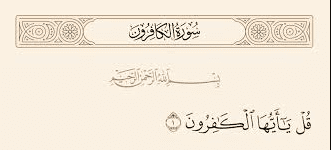 سُورَةُ الكَافِرُونَ
بِسْمِ اللَّهِ الرَّحْمَٰنِ الرَّحِيمِ
قُلْ يَـٰٓأَيُّهَا ٱلْكَـٰفِرُونَ ١